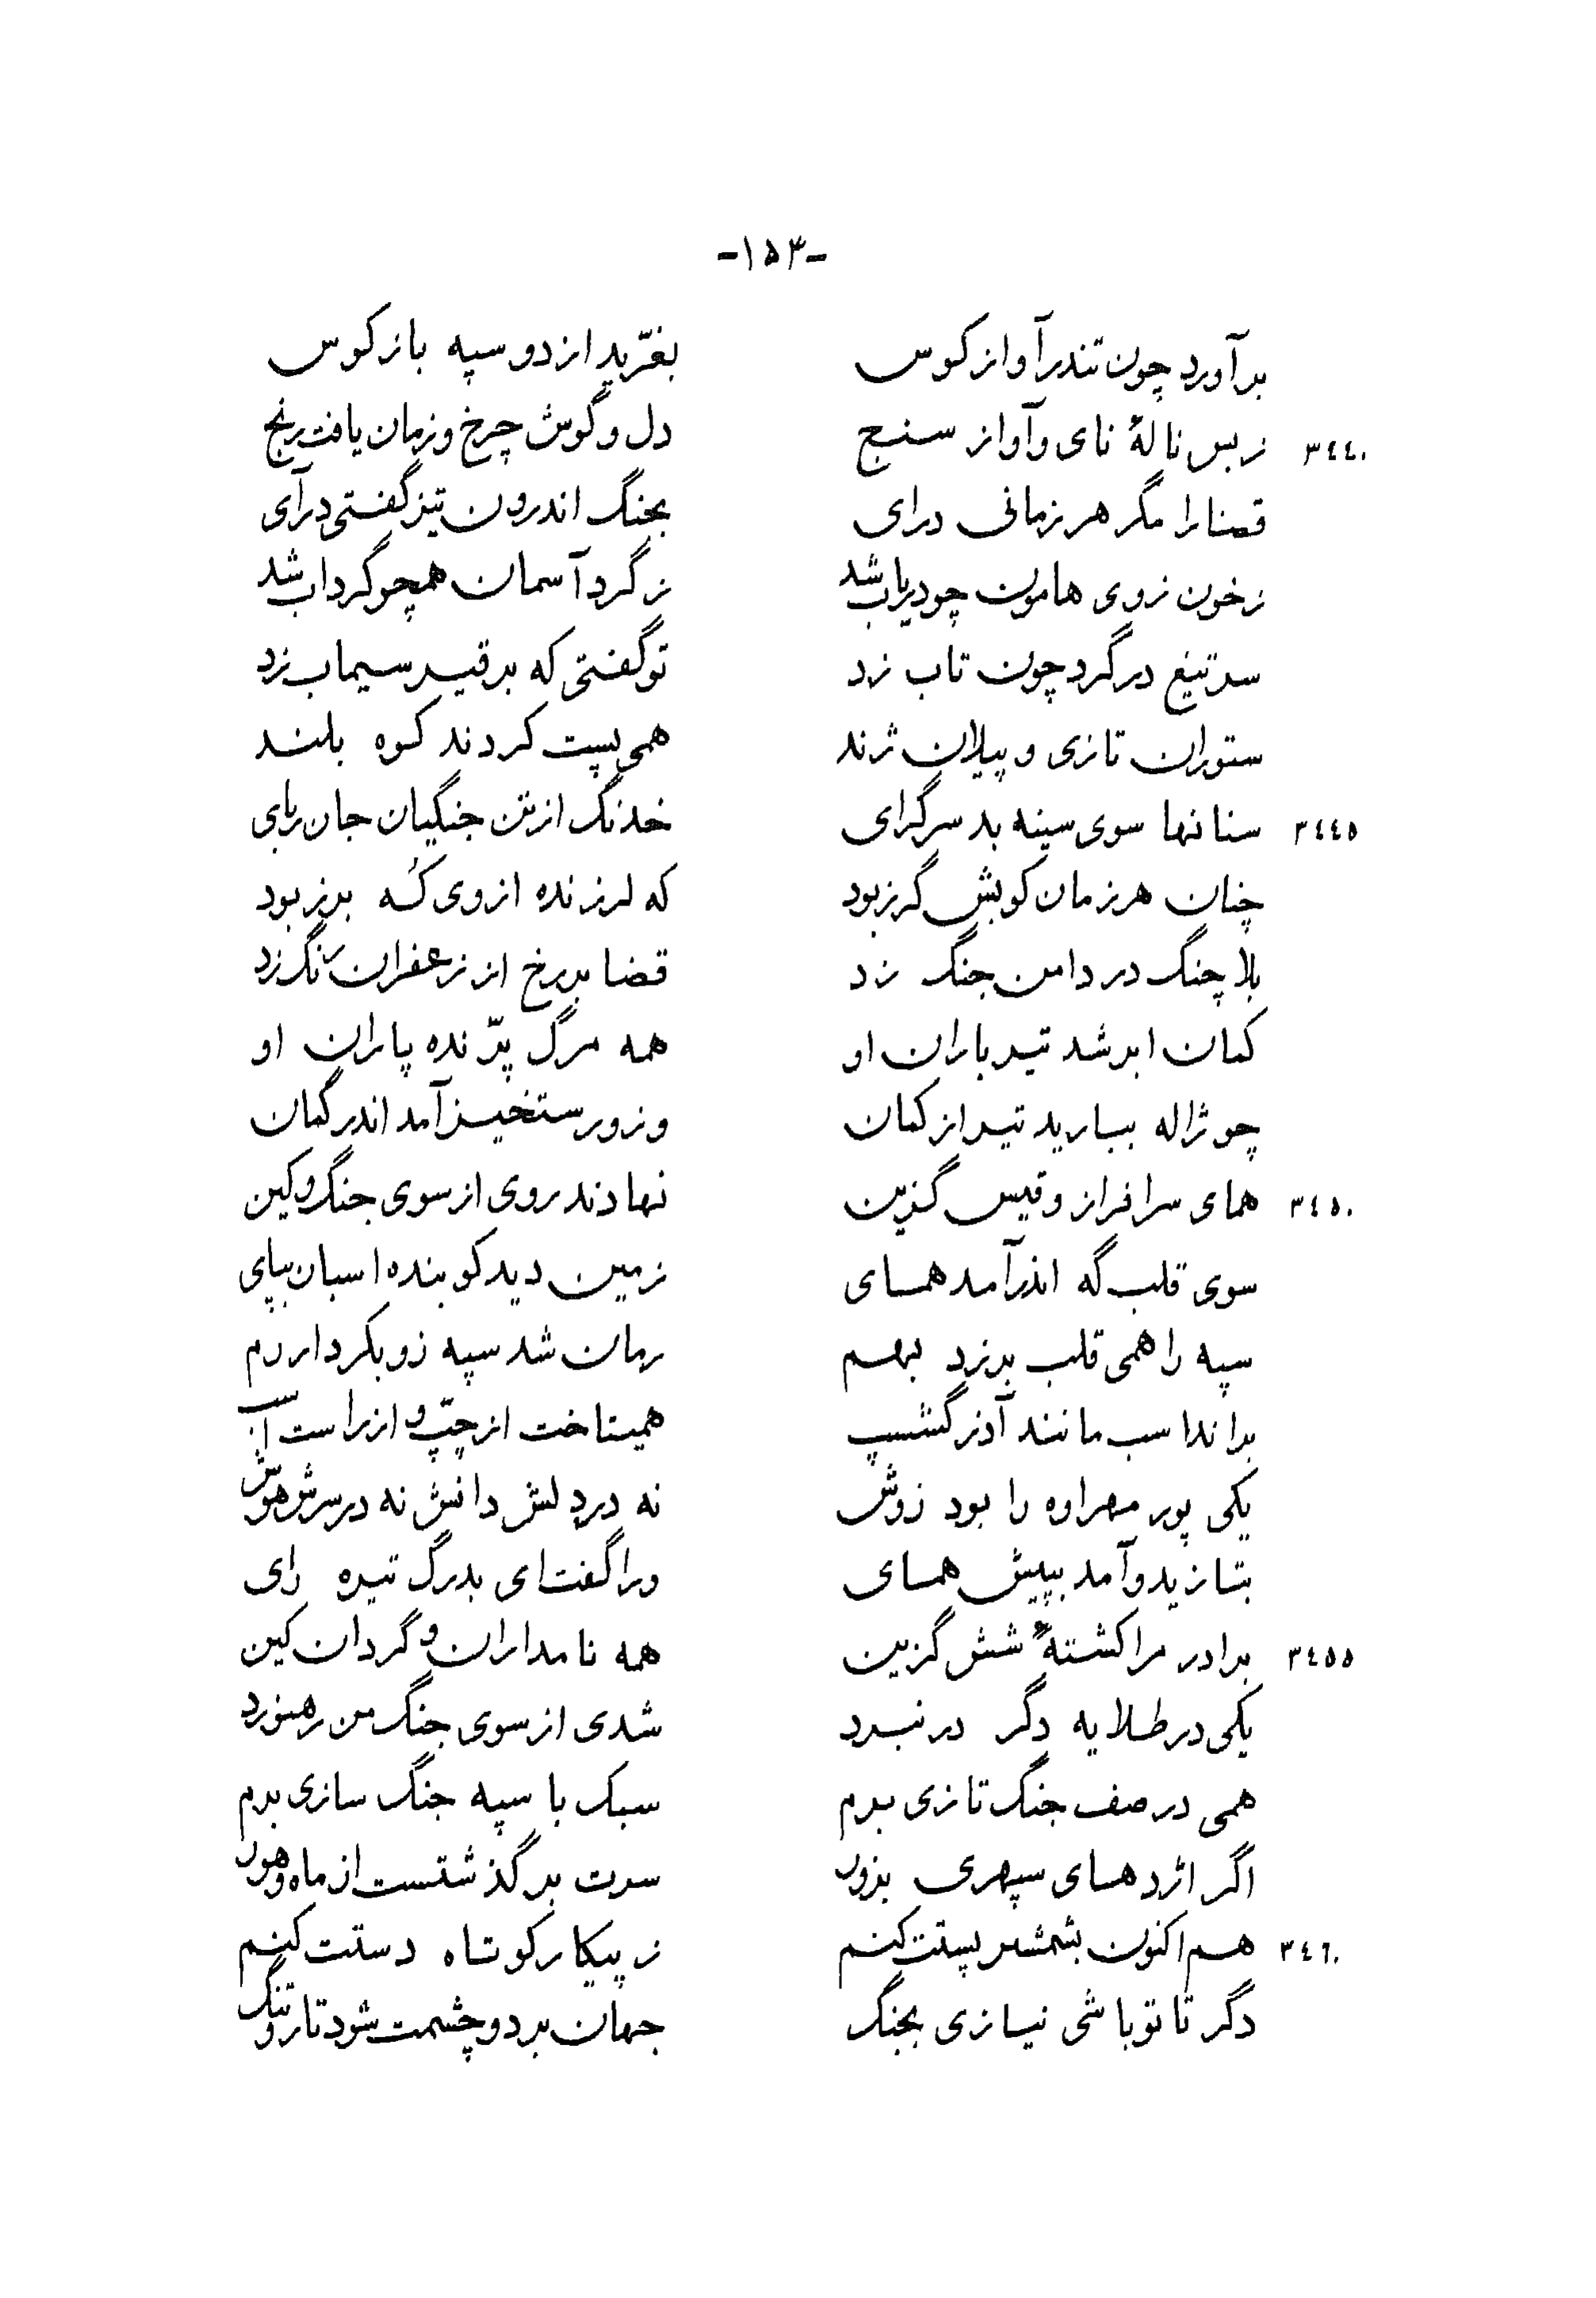 -۱۵۳-
برآورد چون تندر آواز کوس بغرّید از دو سپه باز کوس
۳۴۴۰ زبس نالهٔ نای و آواز سنج دل و گوش چرخ و زمان یافت رنج
قضا را مگر هر زمانی درای بجنگ اندرون تیز گفتی درآی
زخون روی هامون چو دریاب شد زگرد آسمان همچو گرداب شد
سر تیغ در گرد چون تاب زد تو گفتی که بر قیر سیماب زد
ستوران تازی و پیلان ژند همی پست کردند کوه بلند
۳۴۴۵ سنانها سوی سینه بد سرگرای خدنگ از تن جنگیان جان ربای
چنان هر زمان کوبش گرز بود که لرزنده از وی که برز بود
بلا چنگ در دامن جنگ زد قضا بر رخ از زعفران رنگ زد
کمان ابر شد تیر باران او همه مرگ پرّنده پاران او
چو ژاله ببارید تیر از کمان وزو رستخیز آمد اندر گمان
۳۴۵۰ همای سرافراز و قیس گزین نهادند روی از سوی جنگ و کین
سوی قلب گه اندر آمد همای زمین دید کوبنده اسبان بپای
سپه را همی قلب برزد بهم رمان شد سپه زو بکردار رم
براند اسب مانند آذرگشسپ همیتاخت از چپّ و از راست اسپ
یکی پور مهراوه را بود زوش نه در دلش دانش نه در سرش هوش
بتازید و آمد بپیش همای ورا گفت ای بدرگ تیره رای
۳۴۵۵ برادر مرا کشتهٔ شش گزین همه نامداران و گردان کین
یکی در طلایه دگر در نبرد شدی از سوی جنگ من رهنورد
همی در صف جنگ تازی برم سبک با سپه جنگ سازی برم
اگر اژدهای سپهری بزور سرت برگذشتست از ماه و هور
۳۴۶۰ هم اکنون بشمشیر پستت کنم ز پیکار کوتاه دستت کنم
دگر تا تو باشی نیازی بجنگ جهان بر دو چشمت شود تار و تنگ